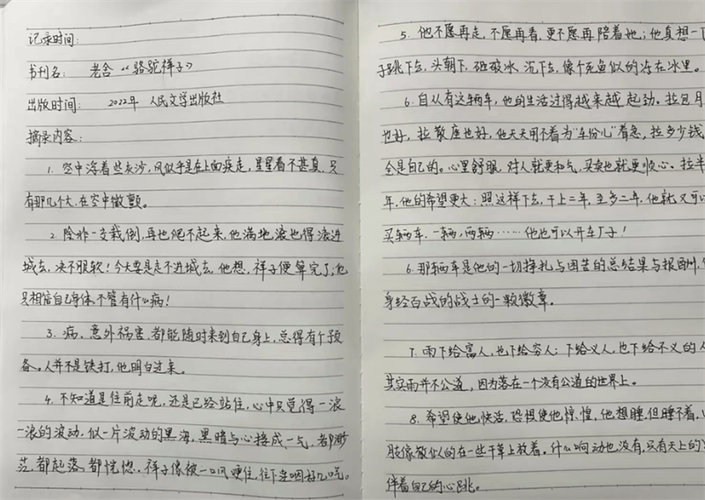 记录时间:
书刊名: 老舍《骆驼祥子》
出版时间: 2022年 人民文学出版社
摘录内容:
1. 空中浮着些灰沙,风似乎是在上面疾走,星星看不甚真,只
有那几个大,在空中微颤。
2. 除非一交栽倒,再也爬不起来,他满地滚也得滚进
城去,决不服软!今天要是走不进城去,他想,祥子便算完了;他
只相信自己身体,不管有什么病!
3. 病、意外祸害,都能随时来到自己身上,总得有个预
备。人并不是铁打,他明白过来。
4. 不知道是往前走呢,还是已经站住,心中只觉得一浪
一浪的波动,似一片波动的黑海,黑暗与心接成一气,都渺
茫,都起落,都恍惚。祥子像被一口风噎住,往下连咽好几口气。
5. 他不愿再走,不愿再看,更不愿再陪着她;他真想一下
子跳下去,头朝下,砸破冰,沉下去,像个死鱼似的冻在冰里。
6. 自从有这辆车,他的生活过得越来越起劲。拉包月
也好,拉散座也好,他天天用不着为“车份儿”着急,拉多少钱
全是自己的。心里舒服,对人就更和气,买卖也就更顺心。拉半
年,他的希望更大:照这样下去,干上二年,至多二年,他就又可以
买辆车,一辆,两辆……他也可以开车厂子!
6. 那辆车是他的一切挣扎与困苦的总结果与报酬,
身经百战的战士的一颗徽章。
7. 雨下给富人,也下给穷人;下给义人,也下给不义的人
其实雨并不公道,因为落在一个没有公道的世界上。
8. 希望使他快活,恐惧使他惊惶,他想睡,但睡不着,
肢像散似的在一些干草上放着。什么响动也没有,只有天上的
伴着自己的心跳。